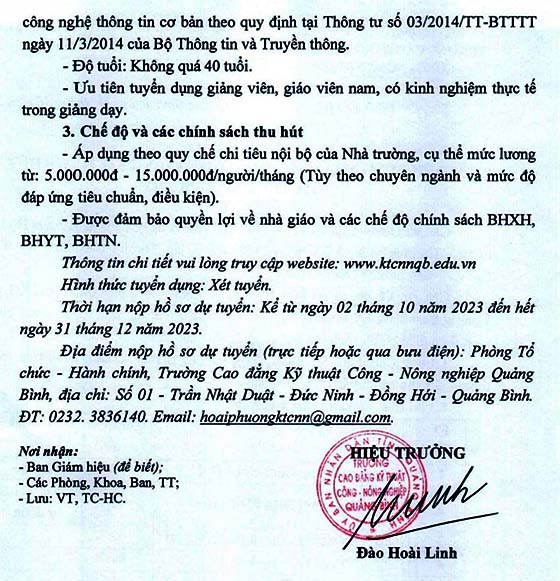 công nghệ thông tin cơ bản theo quy định tại Thông tư số 03/2014/TT-BTTTT
ngày 11/3/2014 của Bộ Thông tin và Truyền thông.
- Độ tuổi: Không quá 40 tuổi.
- Ưu tiên tuyển dụng giảng viên, giáo viên nam, có kinh nghiệm thực tế
trong giảng dạy.
3. Chế độ và các chính sách thu hút
- Áp dụng theo quy chế chi tiêu nội bộ của Nhà trường, cụ thể mức lương
từ: 5.000.000đ - 15.000.000đ/người/tháng (Tùy theo chuyên ngành và mức độ
đáp ứng tiêu chuẩn, điều kiện).
- Được đảm bảo quyền lợi về nhà giáo và các chế độ chính sách BHXH,
BHYT, BHTN.
Thông tin chi tiết vui lòng truy cập website: www.ktcnnqb.edu.vn
Hình thức tuyển dụng: Xét tuyển.
Thời hạn nộp hồ sơ dự tuyển: Kể từ ngày 02 tháng 10 năm 2023 đến hết
ngày 31 tháng 12 năm 2023.
Địa điểm nộp hồ sơ dự tuyển (trực tiếp hoặc qua bưu điện): Phòng Tổ
chức - Hành chính, Trường Cao đẳng Kỹ thuật Công - Nông nghiệp Quảng
Bình, địa chỉ: Số 01 - Trần Nhật Duật - Đức Ninh - Đồng Hới - Quảng Bình.
ĐT: 0232. 3836140. Email: hoaiphuongktcnn@gmail.com.
Nơi nhận:
- Ban Giám hiệu (để biết);
- Các Phòng, Khoa, Ban, TT;
- Lưu: VT, TC-HC.
HIỆU TRƯỞNG
ỦY BAN NHÂN DÂN TỈNH QUẢNG BÌNH
TRƯỜNG
CAO ĐẲNG KỸ THUẬT
CÔNG - NÔNG NGHIỆP
QUẢNG BÌNH
Đào Hoài Linh